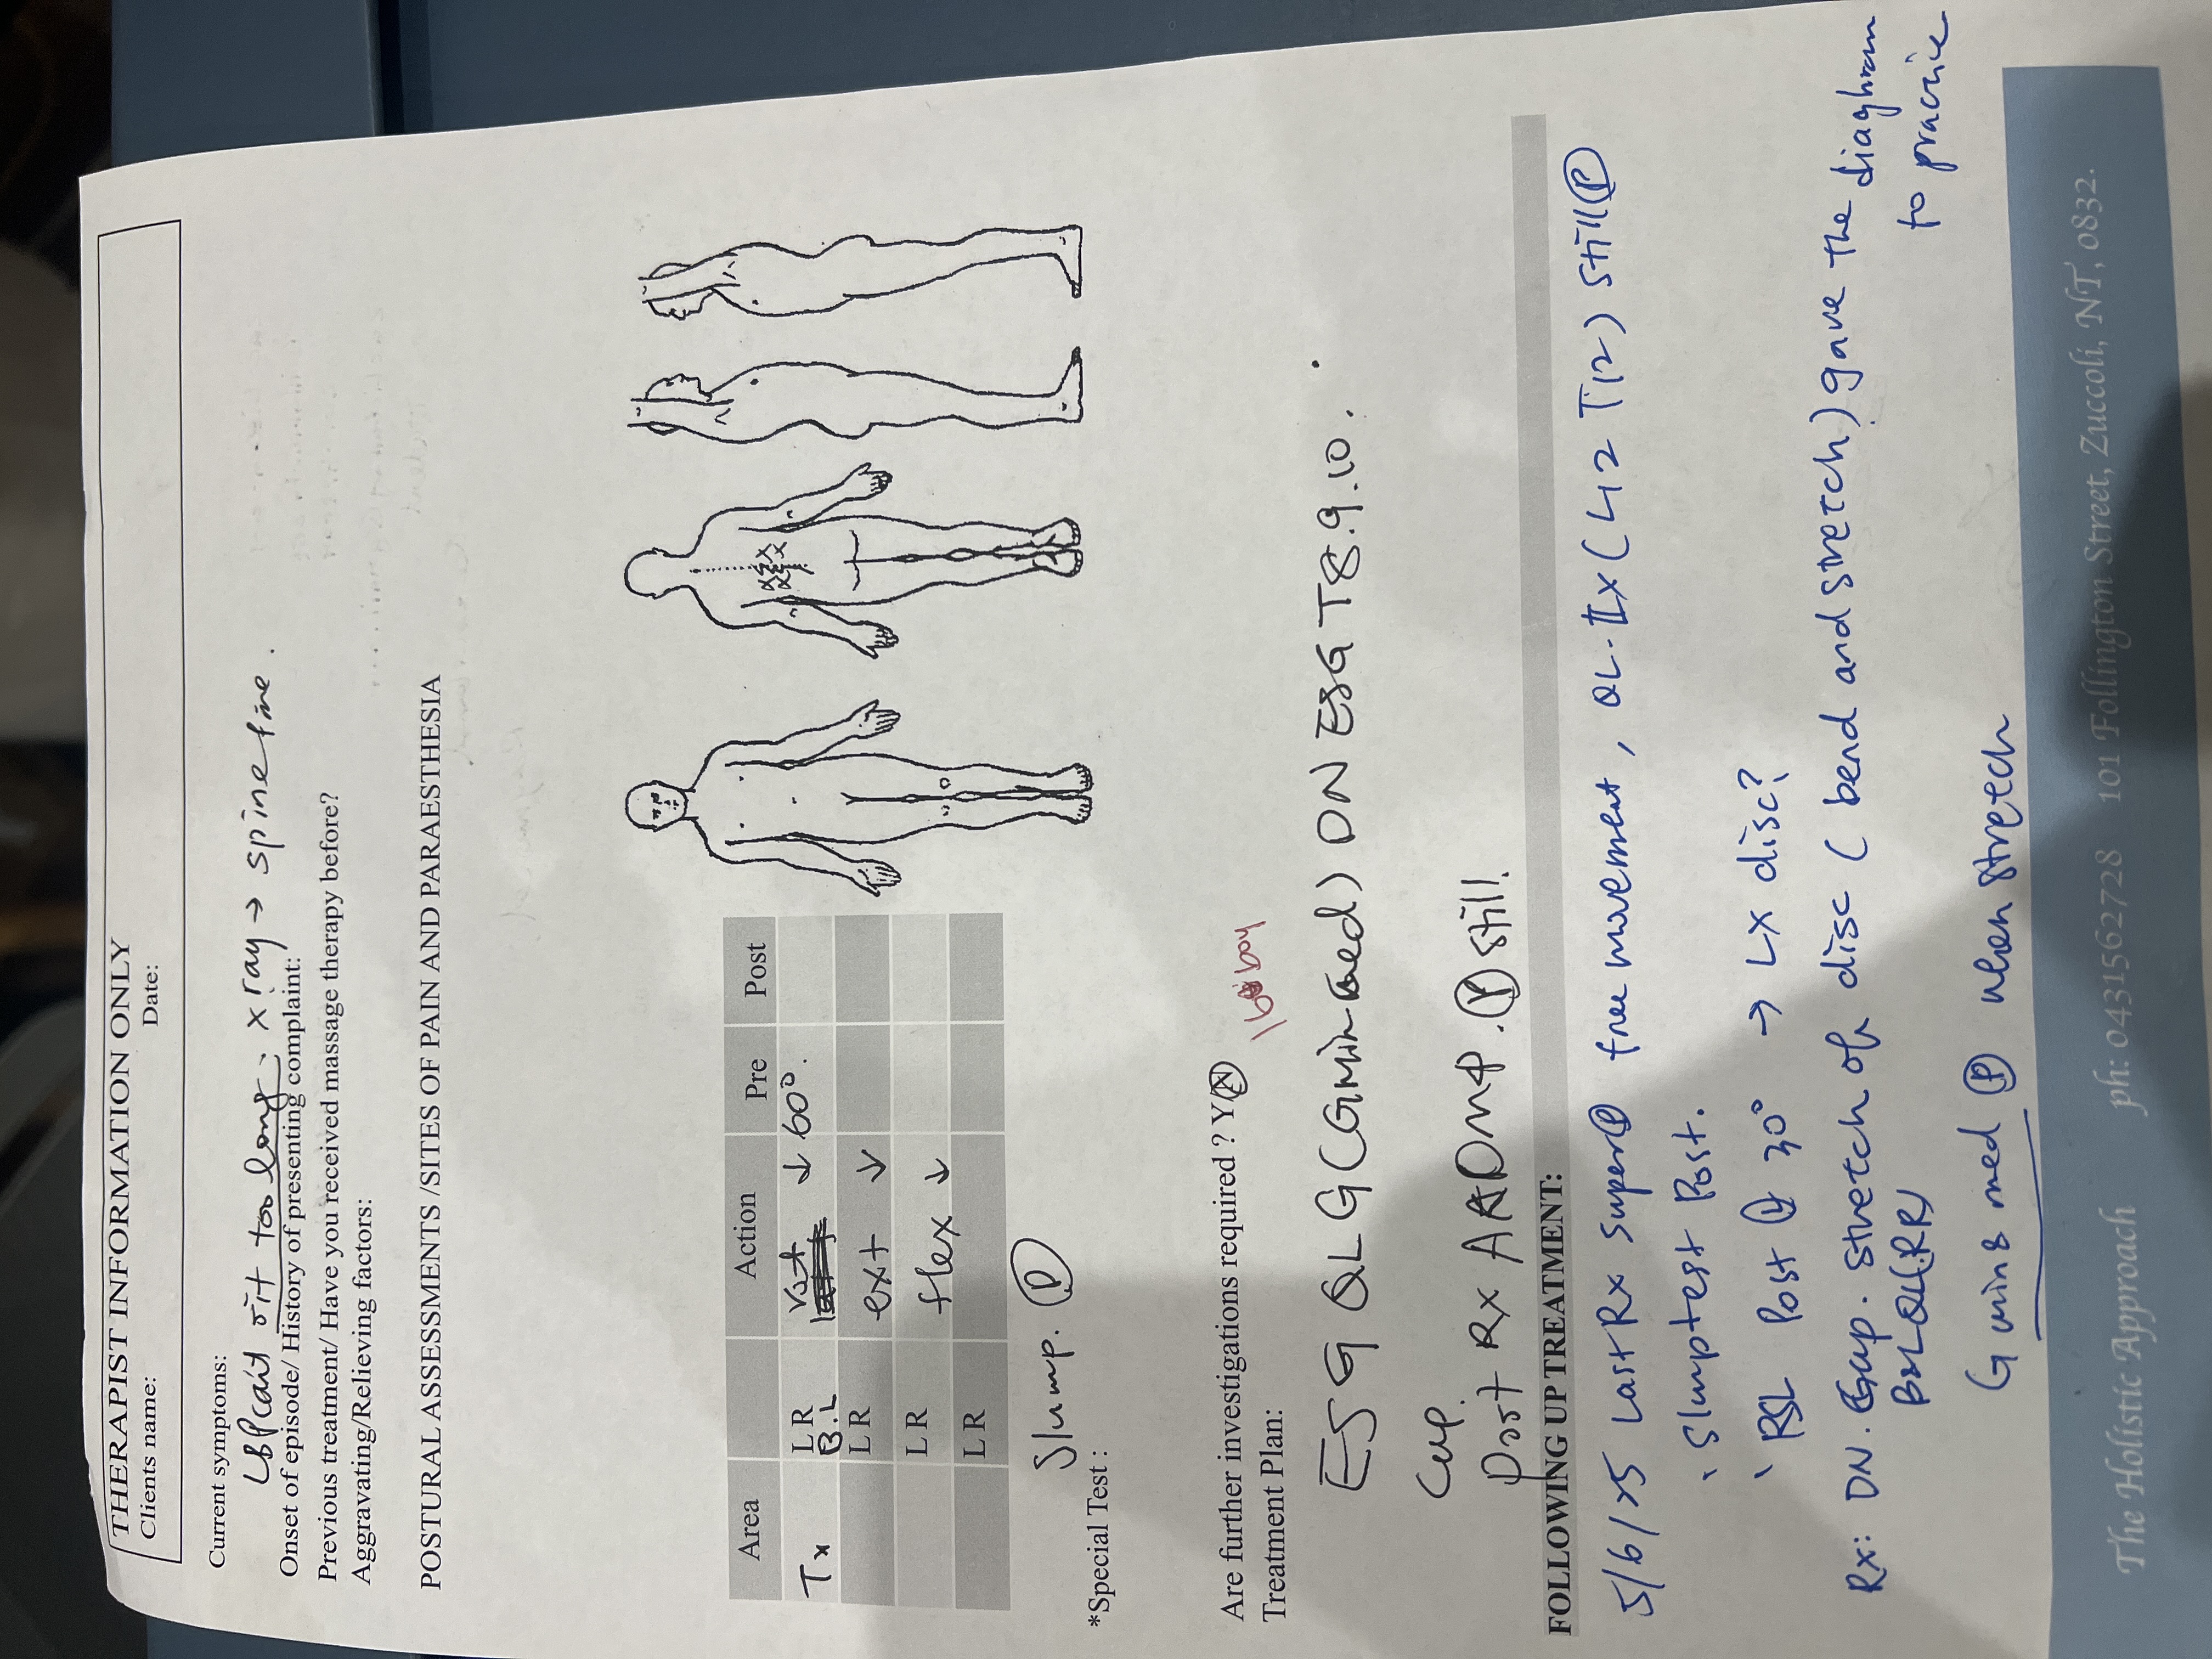 THERAPIST INFORMATION ONLY
Clients name: Date:
Current symptoms:
LBPain sit too long. x ray → spine fine.
Onset of episode/ History of presenting complaint:
Previous treatment/ Have you received massage therapy before?
Aggravating/Relieving factors:
POSTURAL ASSESSMENTS /SITES OF PAIN AND PARAESTHESIA
Area Action Pre Post
Tx L R rot ↓ 60°.
B.L
L R ext ↓
L R flex ↓
L R
*Special Test : Slump. (P)
Are further investigations required ? Y(N)
Treatment Plan:
ESG QLG (Gmin med) DN ESG T8.9.10.
Cup.
Post Rx AROM↑. (P) still.
FOLLOWING UP TREATMENT:
5/6/25 Last Rx super (P) free movement, QL. Lx (L12 T12) still (P)
Slump test Post.
RSL Post @ 30° → Lx disc?
Rx: DN. Cup. stretch of disc (bend and stretch) gave the diaghram
to pracrice
BxL QL(RR)
G min & med (P) when stretch
The Holistic Approach ph: 0431562728 101 Follington Street, Zuccoli, NT, 0832.